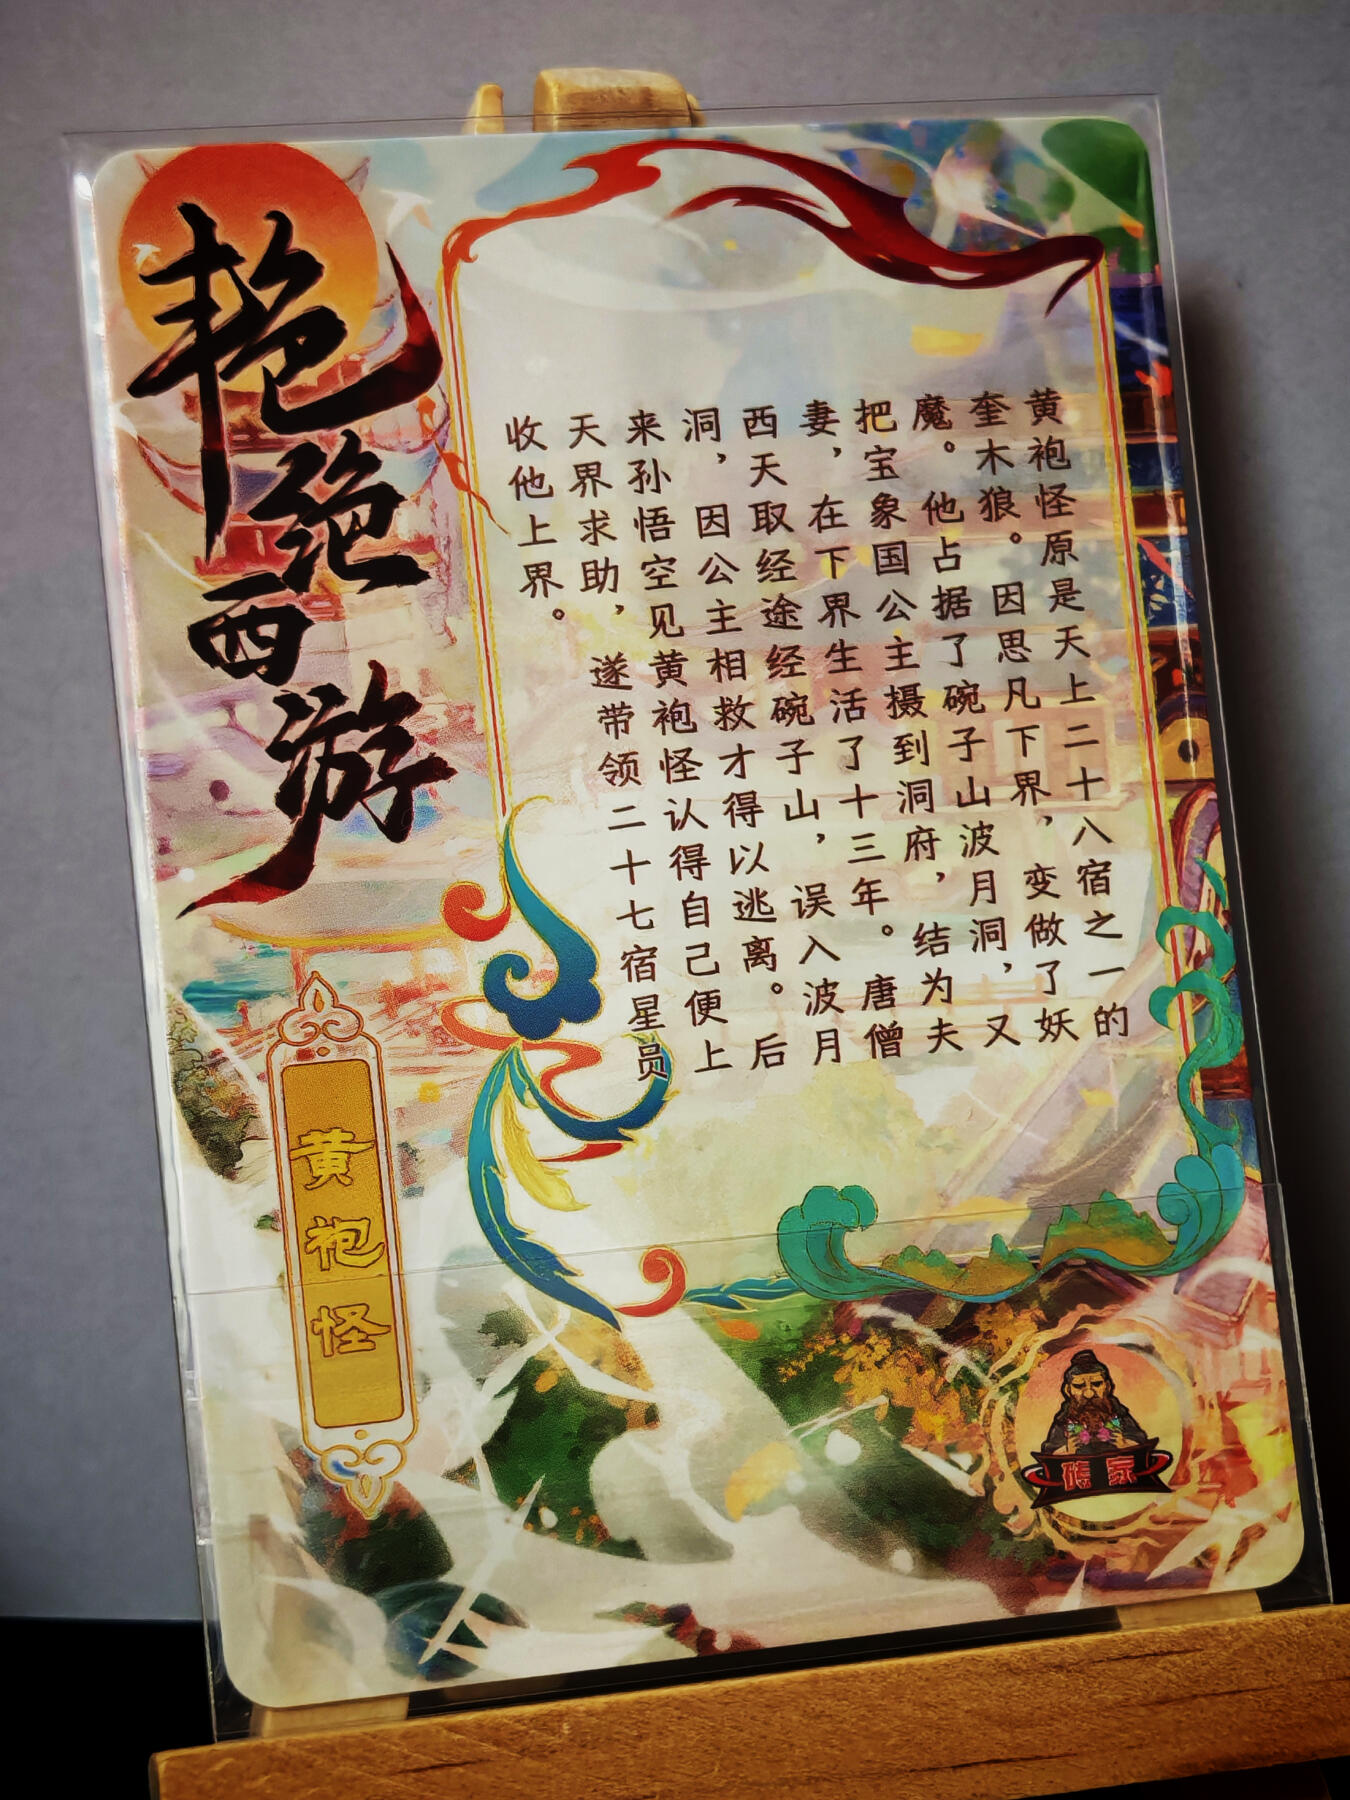 艳绝西游
黄袍怪原是天上二十八宿之一的
奎木狼。因思凡下界，变做了妖
魔。他占据了碗子山波月洞，又
把宝象国公主摄到洞府，结为夫
妻，在下界生活了十三年。唐僧
西天取经途经碗子山，误入波月
洞，因公主相救才得以逃离。后
来孙悟空见黄袍怪认得自己便上
天界求助，遂带领二十七宿星员
收他上界。
黄袍怪
砖家